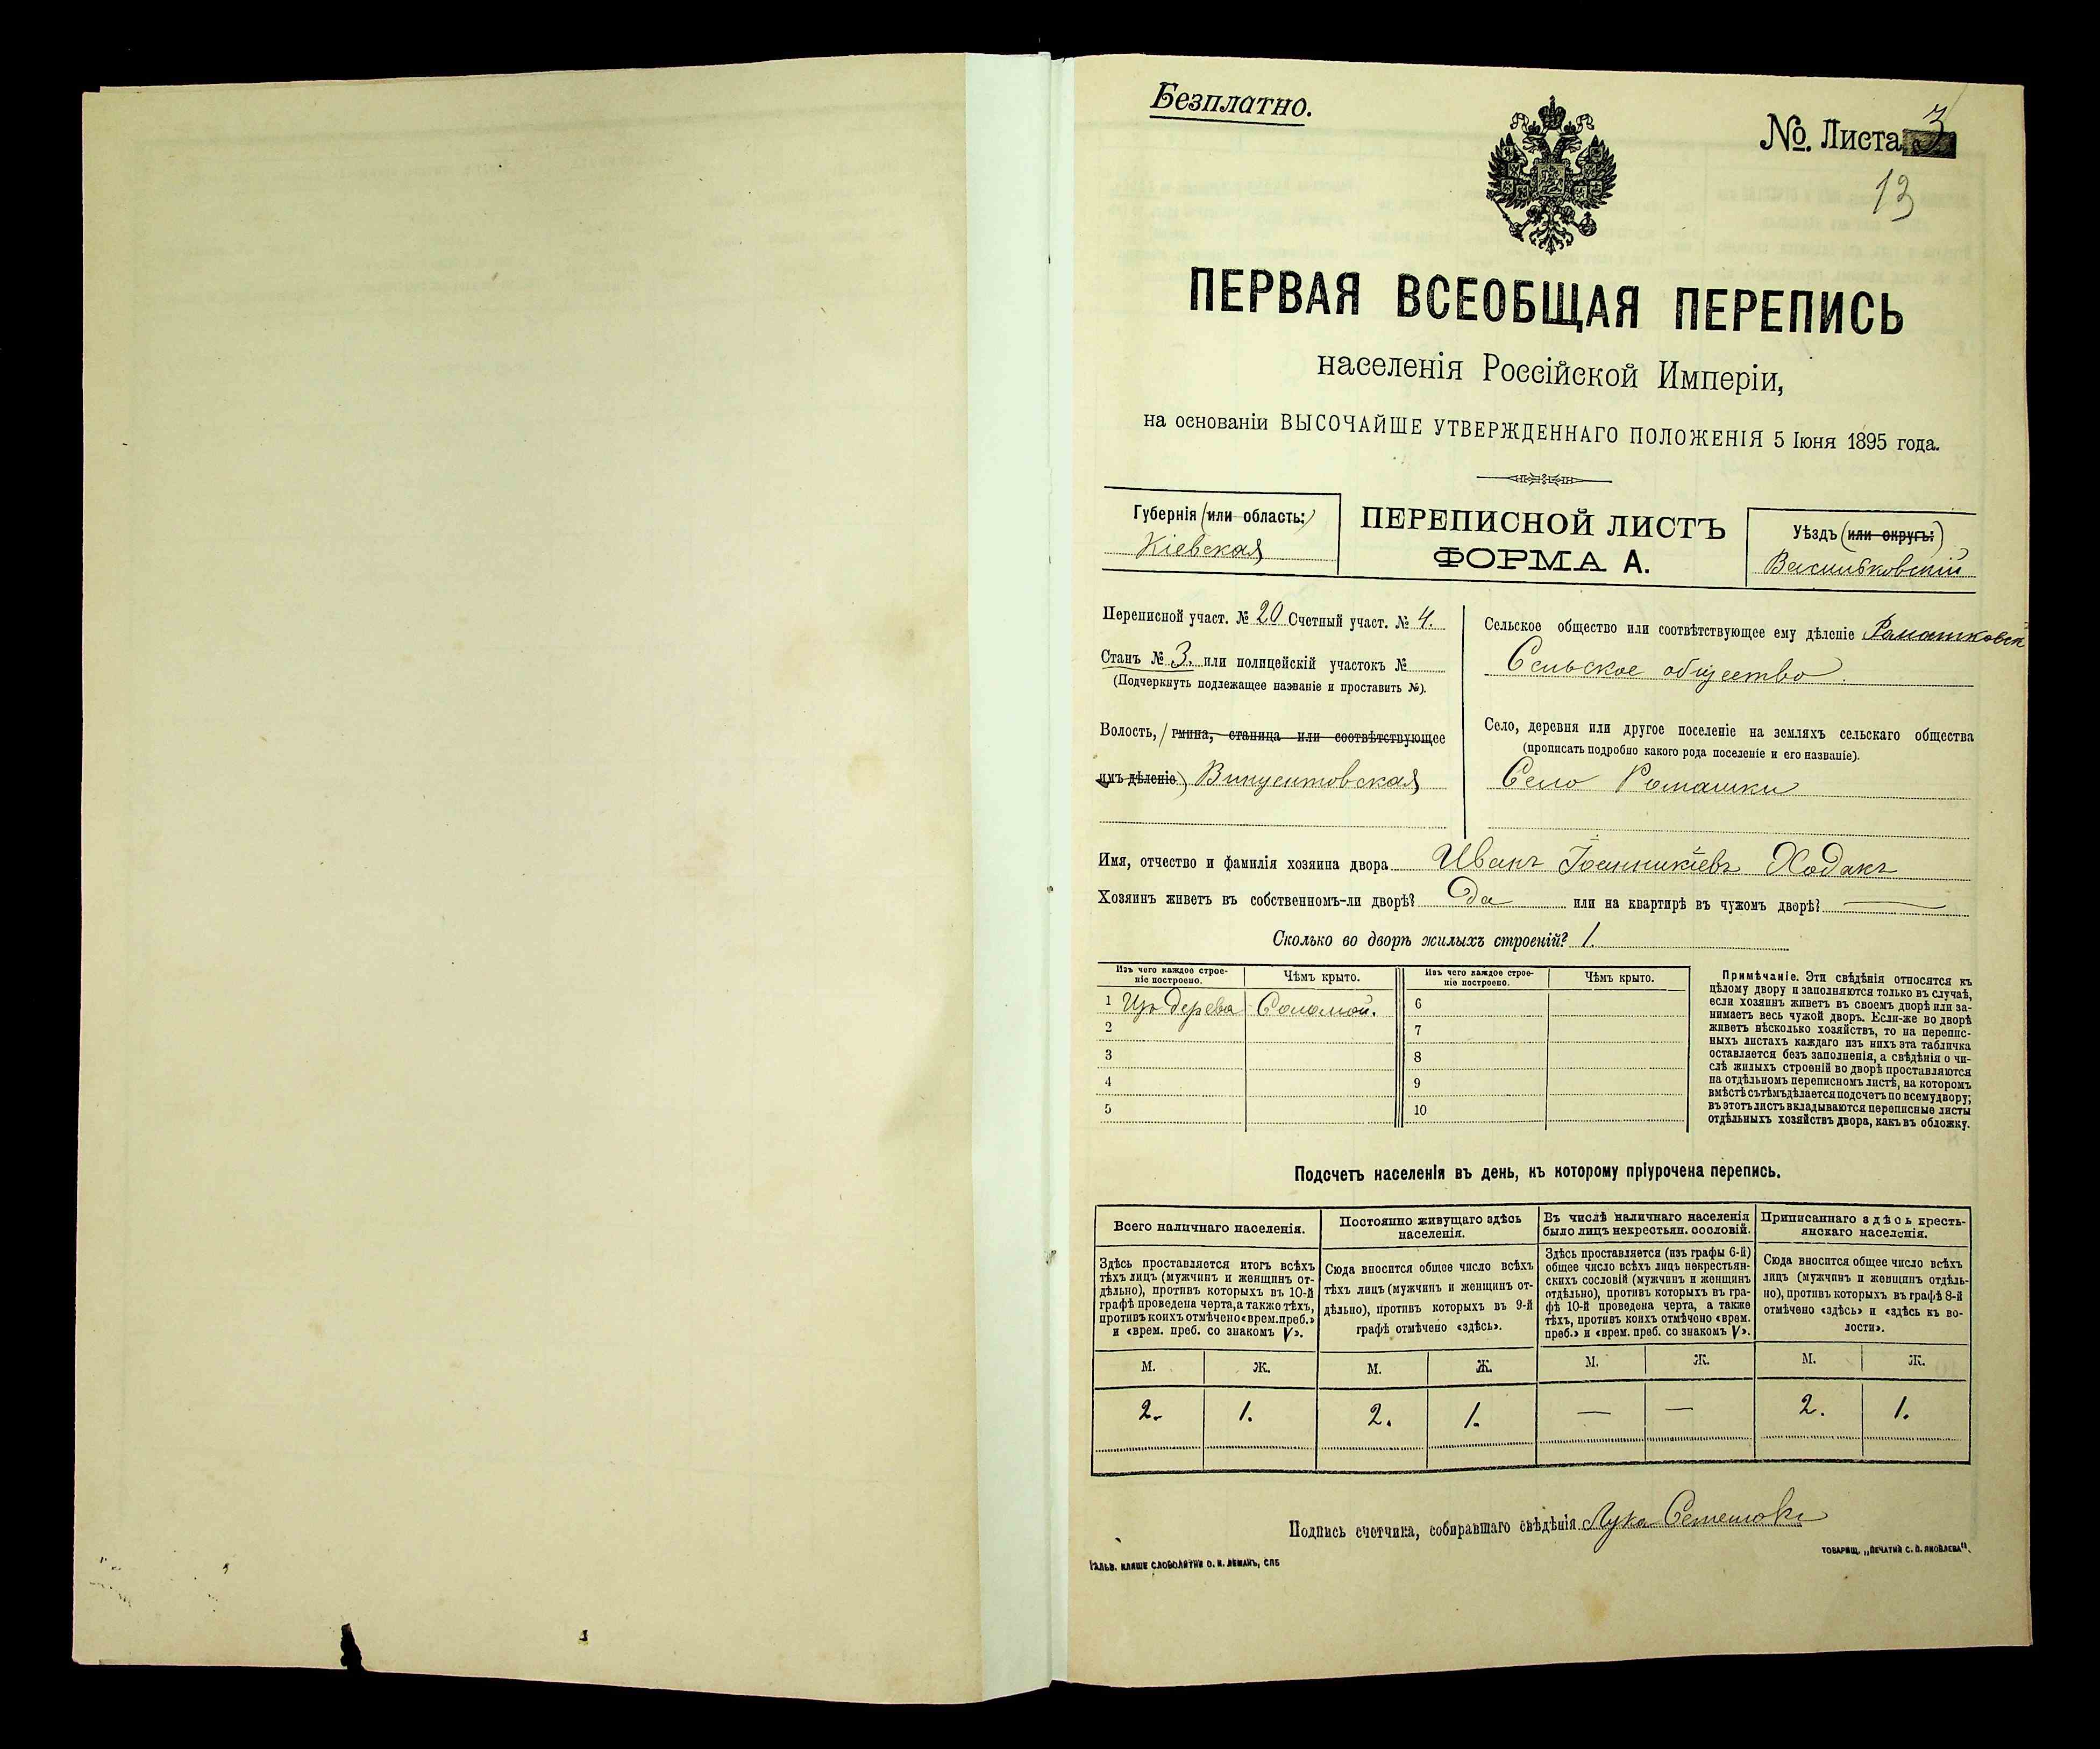 Безплатно.
№. Листа 3
13
ПЕРВАЯ ВСЕОБЩАЯ ПЕРЕПИСЬ
населенія Россійской Имперіи,
на основаніи ВЫСОЧАЙШЕ УТВЕРЖДЕННАГО ПОЛОЖЕНІЯ 5 Іюня 1895 года.
Губернія (или область:)
Кіевская
ПЕРЕПИСНОЙ ЛИСТЪ
ФОРМА А.
Уѣздъ (или округъ:)
Васильковскій
Переписной участ. № 20 Счетный участ. № 4.
Станъ № 3. или полицейскій участокъ №
(Подчеркнуть подлежащее названіе и проставить №).
Волость, (гмина, станица или соотвѣтствующее
имъ дѣленіе) Винцентовская
Сельское общество или соотвѣтствующее ему дѣленіе Ромашковск
Сельское общество.
Село, деревня или другое поселеніе на земляхъ сельскаго общества
(прописать подробно какого рода поселеніе и его названіе).
Село Ромашки
Имя, отчество и фамилія хозяина двора Иванъ Іоанникіевъ Ходакъ
Хозяинъ живетъ въ собственномъ-ли дворѣ? Да или на квартирѣ въ чужомъ дворѣ? —
Сколько во дворѣ жилыхъ строеній? 1.
Изъ чего каждое строе-
ніе построено.
Чѣмъ крыто.
Изъ чего каждое строе-
ніе построено.
Чѣмъ крыто.
1 Изъ дерева Соломой. 6
2 7
3 8
4 9
5 10
Примѣчаніе. Эти свѣдѣнія относятся къ
цѣлому двору и заполняются только въ случаѣ,
если хозяинъ живетъ въ своемъ дворѣ или за-
нимаетъ весь чужой дворъ. Если-же во дворѣ
живетъ нѣсколько хозяйствъ, то на перепис-
ныхъ листахъ каждаго изъ нихъ эта табличка
оставляется безъ заполненія, а свѣдѣнія о чи-
слѣ жилыхъ строеній во дворѣ проставляются
на отдѣльномъ переписномъ листѣ, на которомъ
вмѣстѣ съ тѣмъ дѣлается подсчетъ по всему двору;
въ этотъ листъ вкладываются переписные листы
отдѣльныхъ хозяйствъ двора, какъ въ обложку.
Подсчетъ населенія въ день, къ которому пріурочена перепись.
Всего наличнаго населенія.
Здѣсь проставляется итогъ всѣхъ
тѣхъ лицъ (мужчинъ и женщинъ от-
дѣльно), противъ которыхъ въ 10-й
графѣ проведена черта, а также тѣхъ,
противъ коихъ отмѣчено «врем. преб.»
и «врем. преб. со знакомъ V».
Постоянно живущаго здѣсь
населенія.
Сюда вносится общее число всѣхъ
тѣхъ лицъ (мужчинъ и женщинъ от-
дѣльно), противъ которыхъ въ 9-й
графѣ отмѣчено «здѣсь».
Въ числѣ наличнаго населенія
было лицъ некрестьян. сословій.
Здѣсь проставляется (изъ графы 6-й)
общее число всѣхъ лицъ некрестьян-
скихъ сословій (мужчинъ и женщинъ
отдѣльно), противъ которыхъ въ гра-
фѣ 10-й проведена черта, а также
тѣхъ, противъ коихъ отмѣчено «врем.
преб.» и «врем. преб. со знакомъ V».
Приписаннаго здѣсь кресть-
янскаго населенія.
Сюда вносится общее число всѣхъ
лицъ (мужчинъ и женщинъ отдѣль-
но), противъ которыхъ въ графѣ 8-й
отмѣчено «здѣсь» и «здѣсь къ во-
лости».
М. Ж. М. Ж. М. Ж. М. Ж.
2. 1. 2. 1. — — 2. 1.
Подпись счетчика, собиравшаго свѣдѣнія Лука
ГАЛЬВ. КЛИШЕ СЛОВОЛИТНИ О. И. ЛЕМАНЪ, СПБ
ТОВАРИЩ. „ПЕЧАТНЯ С. П. ЯКОВЛЕВА".